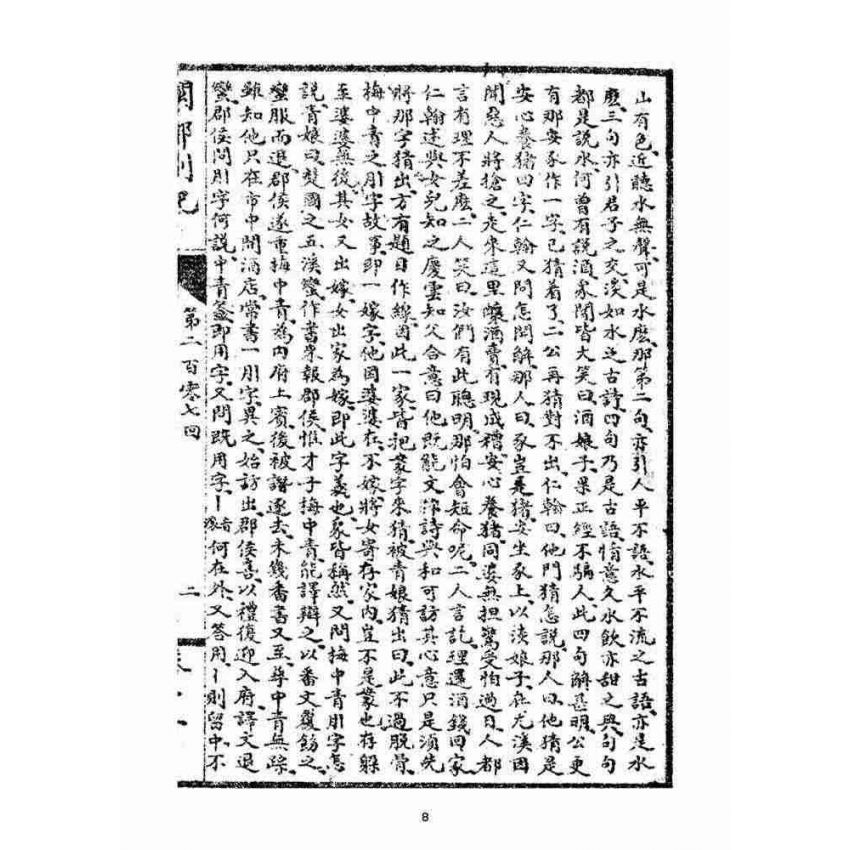 山有色、近聽水無聲、可是水麽、那第二句、亦引人平不語、水平不流之古語、亦是水
麽、三句亦引君子之交、淡如水之古詩、四句乃是古語、情意久水飲亦甜之與、句句
都是說水、何曾有說酒、衆聞皆大笑曰、酒娘子果正經不騙人、此四句解甚明、公更
有那安豕作一字、已猜着了、二公再猜對不出、仁翰曰、他門猜怎說、那人曰、他猜是
安心養猪四字、仁翰又問怎開解、那人曰、豕豈是猪、安坐豕上、以淡娘子、在尤溪因
聞惡人將搶之、走來這里釀酒賣、有現成糟、安心養猪、同婆無担驚受怕過日、人都
言有理不差麽、二人笑曰、汝們有此聰明、那怕會短命呢、二人言訖、理還酒錢回家、
仁翰述與女兒知之、慶雲知父合意曰、他既能文作詩與和、可訪其心意、只是須先
將那字猜出、方有題目作線、因此一家皆把蒙字來猜、被青娘猜出曰、此不過脱骨、
梅中青之刖字故事、即一嫁字、他因婆婆在、不嫁、將女寄存家內、豈不是蒙也、存躲
至婆婆無後、其女又出嫁、女出家為嫁、即此字義也、衆皆稱然、又問梅中青刖字怎
說、青娘曰、楚國之五溪蠻作書來報郡侯、惟才子梅中青能譯辯之、以番文覆飭之、
蠻服而退、郡侯遂重梅中青、為內府上賓、後被譖逐去、未幾番書又至、尋中青無踪、
雖知他只在市中開酒店、常書一刖字異之、始訪出、郡侯喜、以禮復迎入府、譯文退
蠻、郡侯問刖字何說、中青答即用字、又問既用字、亅音厥何在外、又答用亅則留中、不
閩都別記
第二百零七回
二
8